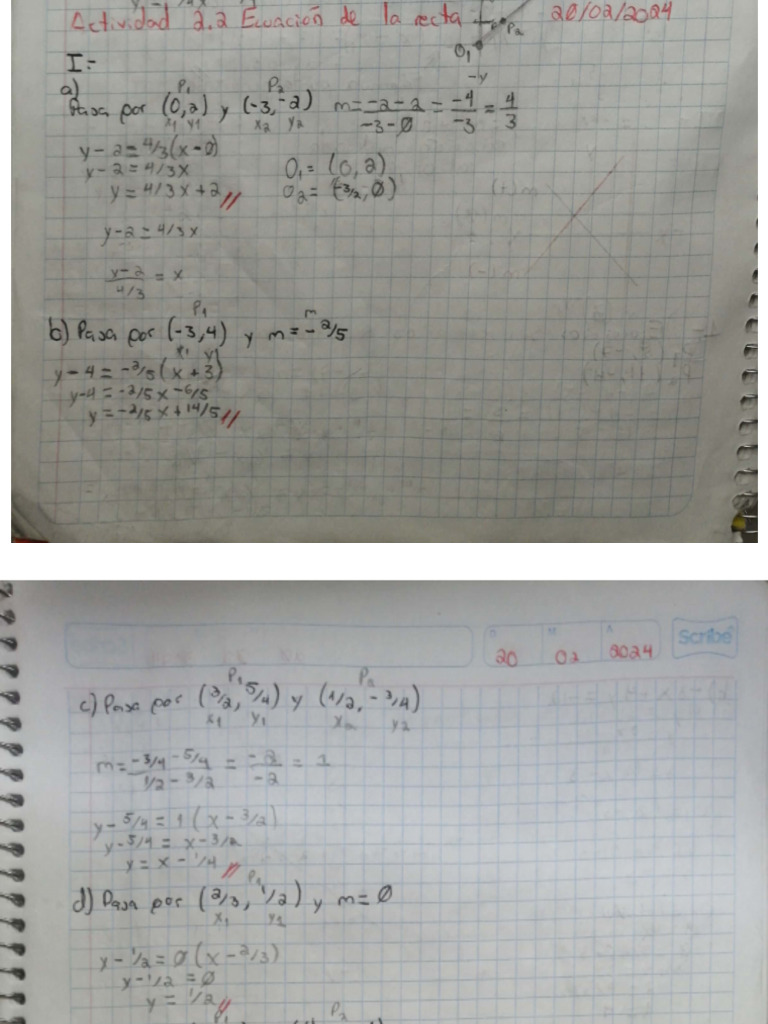 Actividad 2.2 Ecuación de la recta 20/02/2024
P2
O1
-y
I:-
a)
P1 P2
Pasa por (0,2) y (-3,-2) m = -2-2/-3-0 = -4/-3 = 4/3
x1 y1 x2 y2
y-2 = 4/3(x-0)
y-2 = 4/3x O1 = (0,2)
y = 4/3x+2 O2 = (-3/2,0)
y-2 = 4/3x
y-2/4/3 = x
P1 m
b) Pasa por (-3,4) y m = -2/5
x1 y1
y-4 = -2/5(x+3)
y-4 = -2/5x -6/5
y = -2/5x+14/5
Scribe
D M A
20 02 2024
P1 P2
c) Pasa por (3/2, 5/4) y (1/2, -3/4)
x1 y1 x2 y2
m = -3/4-5/4/1/2-3/2 = -2/-2 = 1
y-5/4 = 1(x-3/2)
y-5/4 = x-3/2
y = x-1/4
P1
d) Pasa por (2/3, 1/2) y m=0
x1 y1
y-1/2 = 0(x-2/3)
y-1/2 = 0
y = 1/2
P1 P2